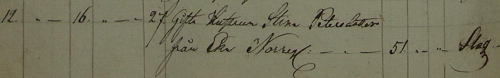 12 „ „ 16 „ „ „ 27 Gift Hustrun Stina Petersdotter
från Eke Norreg „ „ „ 51 „ „ Slag